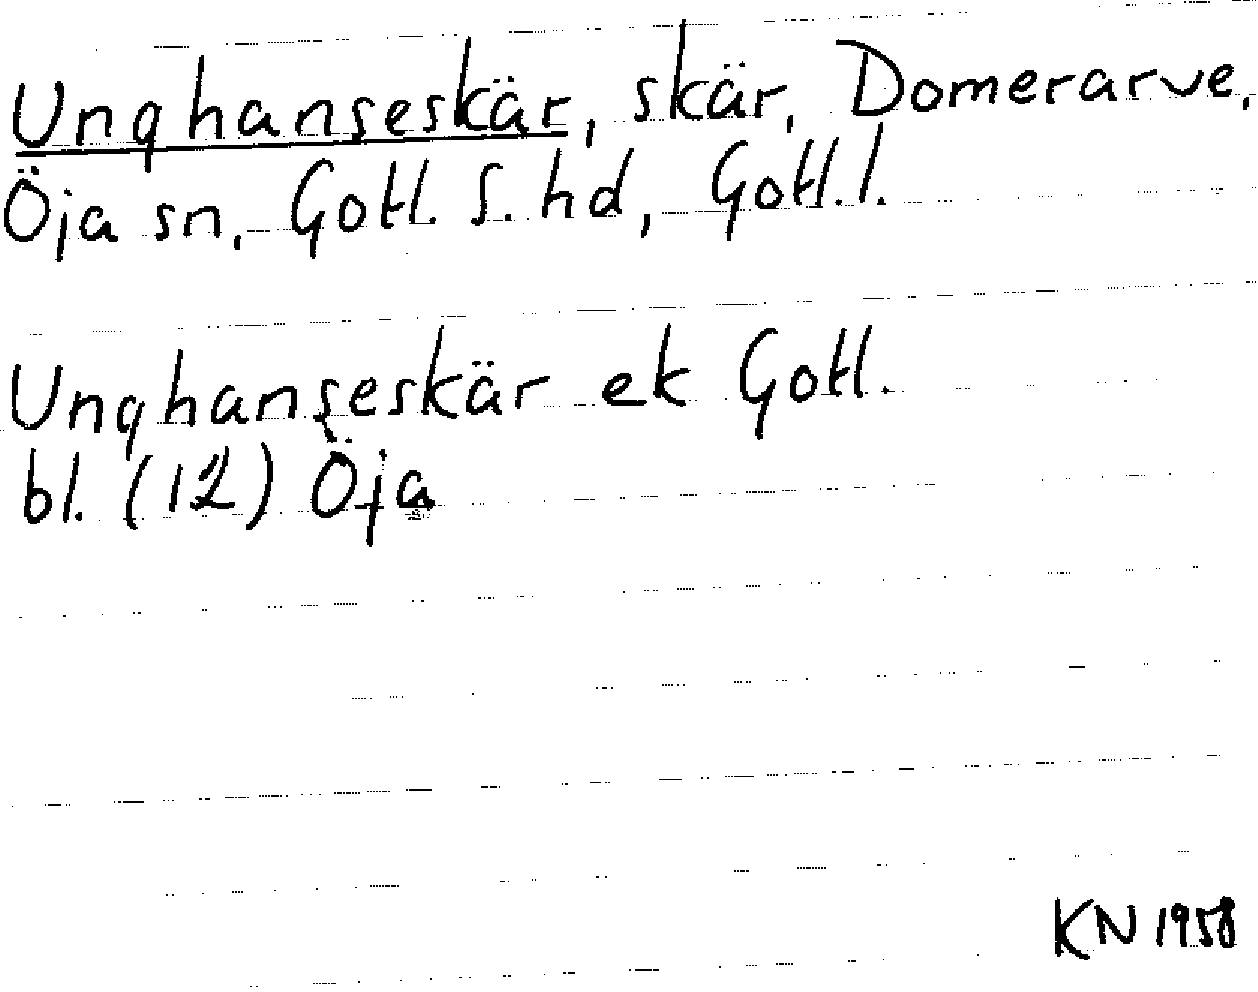 Unghanseskär, skär, Domerarve,
Öja sn, Gotl. S. hd, Gotl. l.
Unghanseskär ek Gotl.
bl. (12) Öja
KN 1958